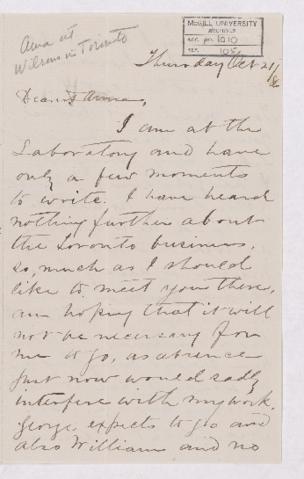 Anna at
Wilsons in Toronto
McGILL UNIVERSITY
ARCHIVES
ACC. NO. 1010
REF. 
Thursday Oct 21/
Dearest Anna,
I am at the
Laboratory and have
only a few moments
to write. I have heard
nothing further about
the Toronto business,
so, much as I should
like to meet you there,
am hoping that it will
not be necessary for
me to go, as absence
just now would sadly
interfere with my work.
George expects to go and
also William and no